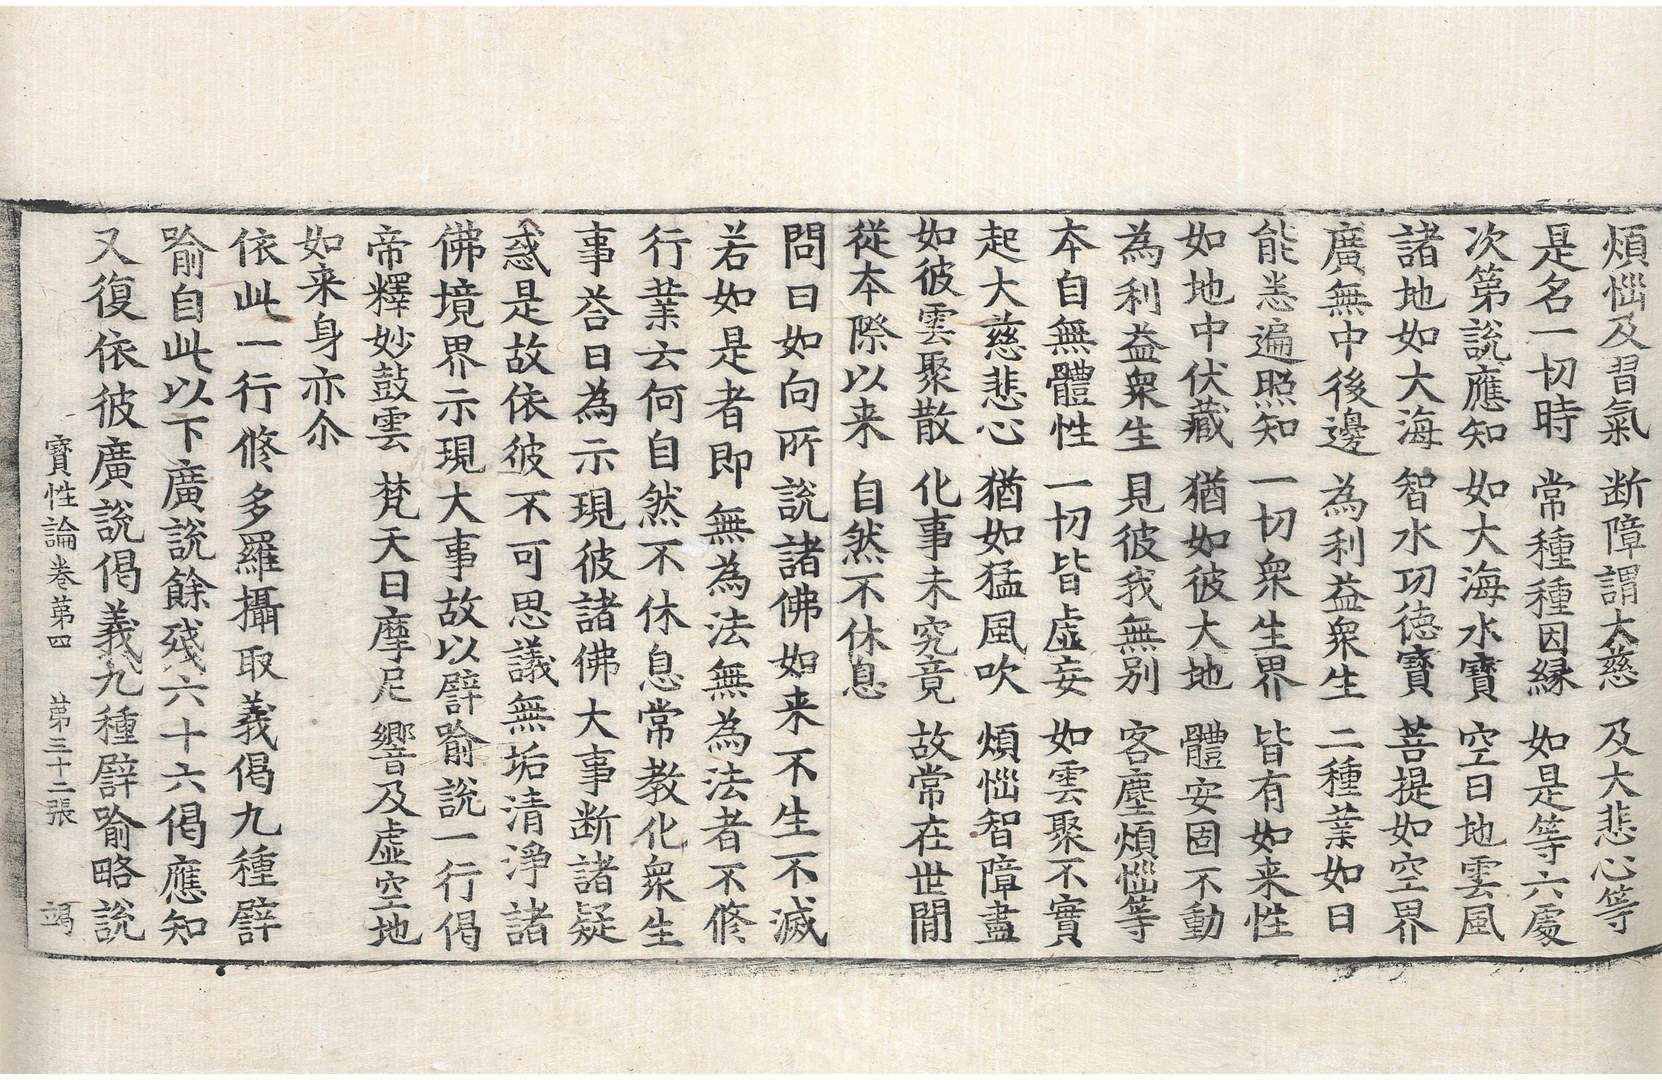 煩惱及習氣 断障謂大慈 及大悲心等
是名一切時 常種種因縁 如是等六處
次第說應知 如大海水寶 空日地雲風
諸地如大海 智水功德寶 菩提如空界
廣無中後邊 為利益衆生 二種業如日
能悉遍照知 一切衆生界 皆有如来性
如地中伏藏 猶如彼大地 體安固不動
為利益衆生 見彼我無别 客塵煩惱等
本自無體性 一切皆虛妄 如雲聚不實
起大慈悲心 猶如猛風吹 煩惱智障盡
如彼雲聚散 化事未究竟 故常在世間
從本際以来 自然不休息
問曰如向所說諸佛如来不生不滅
若如是者即無為法無為法者不修
行業云何自然不休息常教化衆生
事荅曰為示現彼諸佛大事断諸疑
惑是故依彼不可思議無垢清淨諸
佛境界示現大事故以譬喻說一行偈
帝釋妙鼓雲 梵天日摩尼 響及虛空地
如来身亦尒
依此一行修多羅攝取義偈九種譬
喻自此以下廣說餘殘六十六偈應知
又復依彼廣說偈義九種譬喻略說
寶性論卷第四 第三十二張 竭